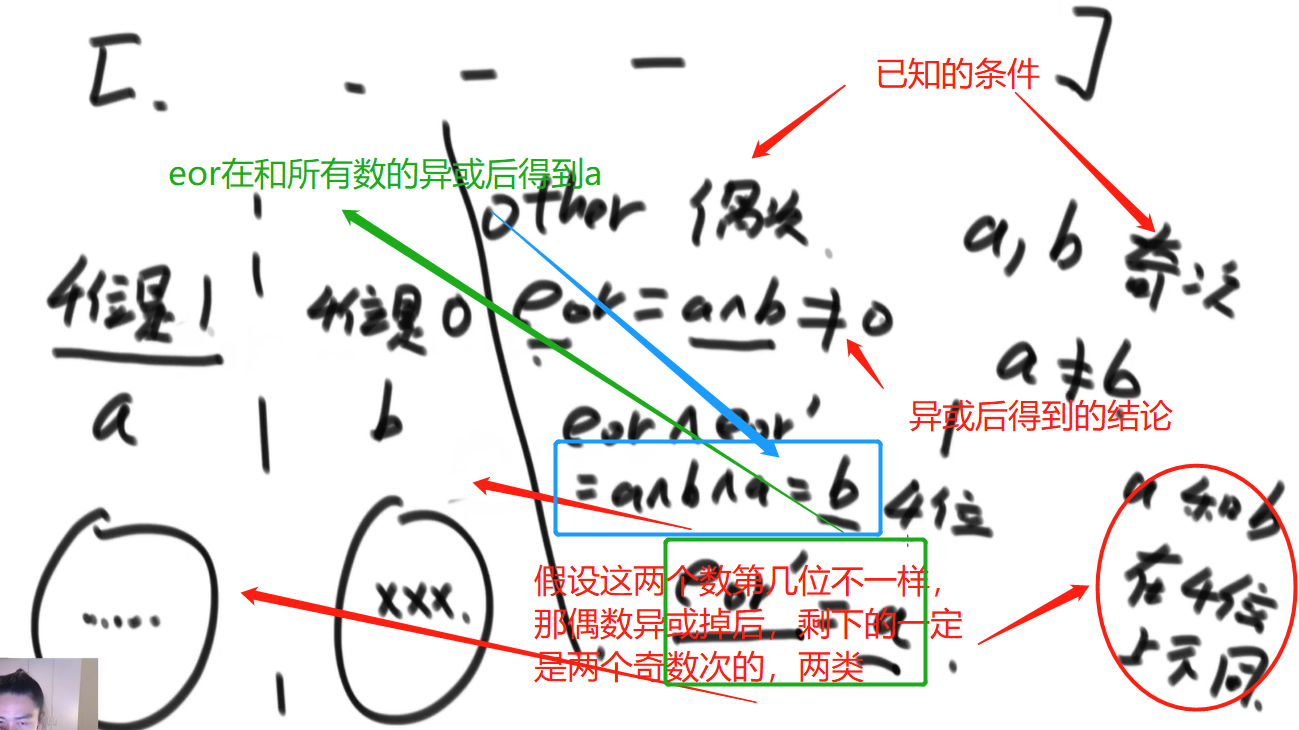 [. . — — ]
已知的条件
eor在和所有数的异或后得到a
other 偶次.
a, b 奇次
4位是1
4位是0
eor = a∧b ≠ 0
a ≠ b
异或后得到的结论
a
b
eor ∧ eor'
= a∧b∧a = b
4位
a 和 b
在 4位
上不同.
.....
xxx.
eor' = a
假设这两个数第几位不一样，
那偶数异或掉后，剩下的一定
是两个奇数次的，两类